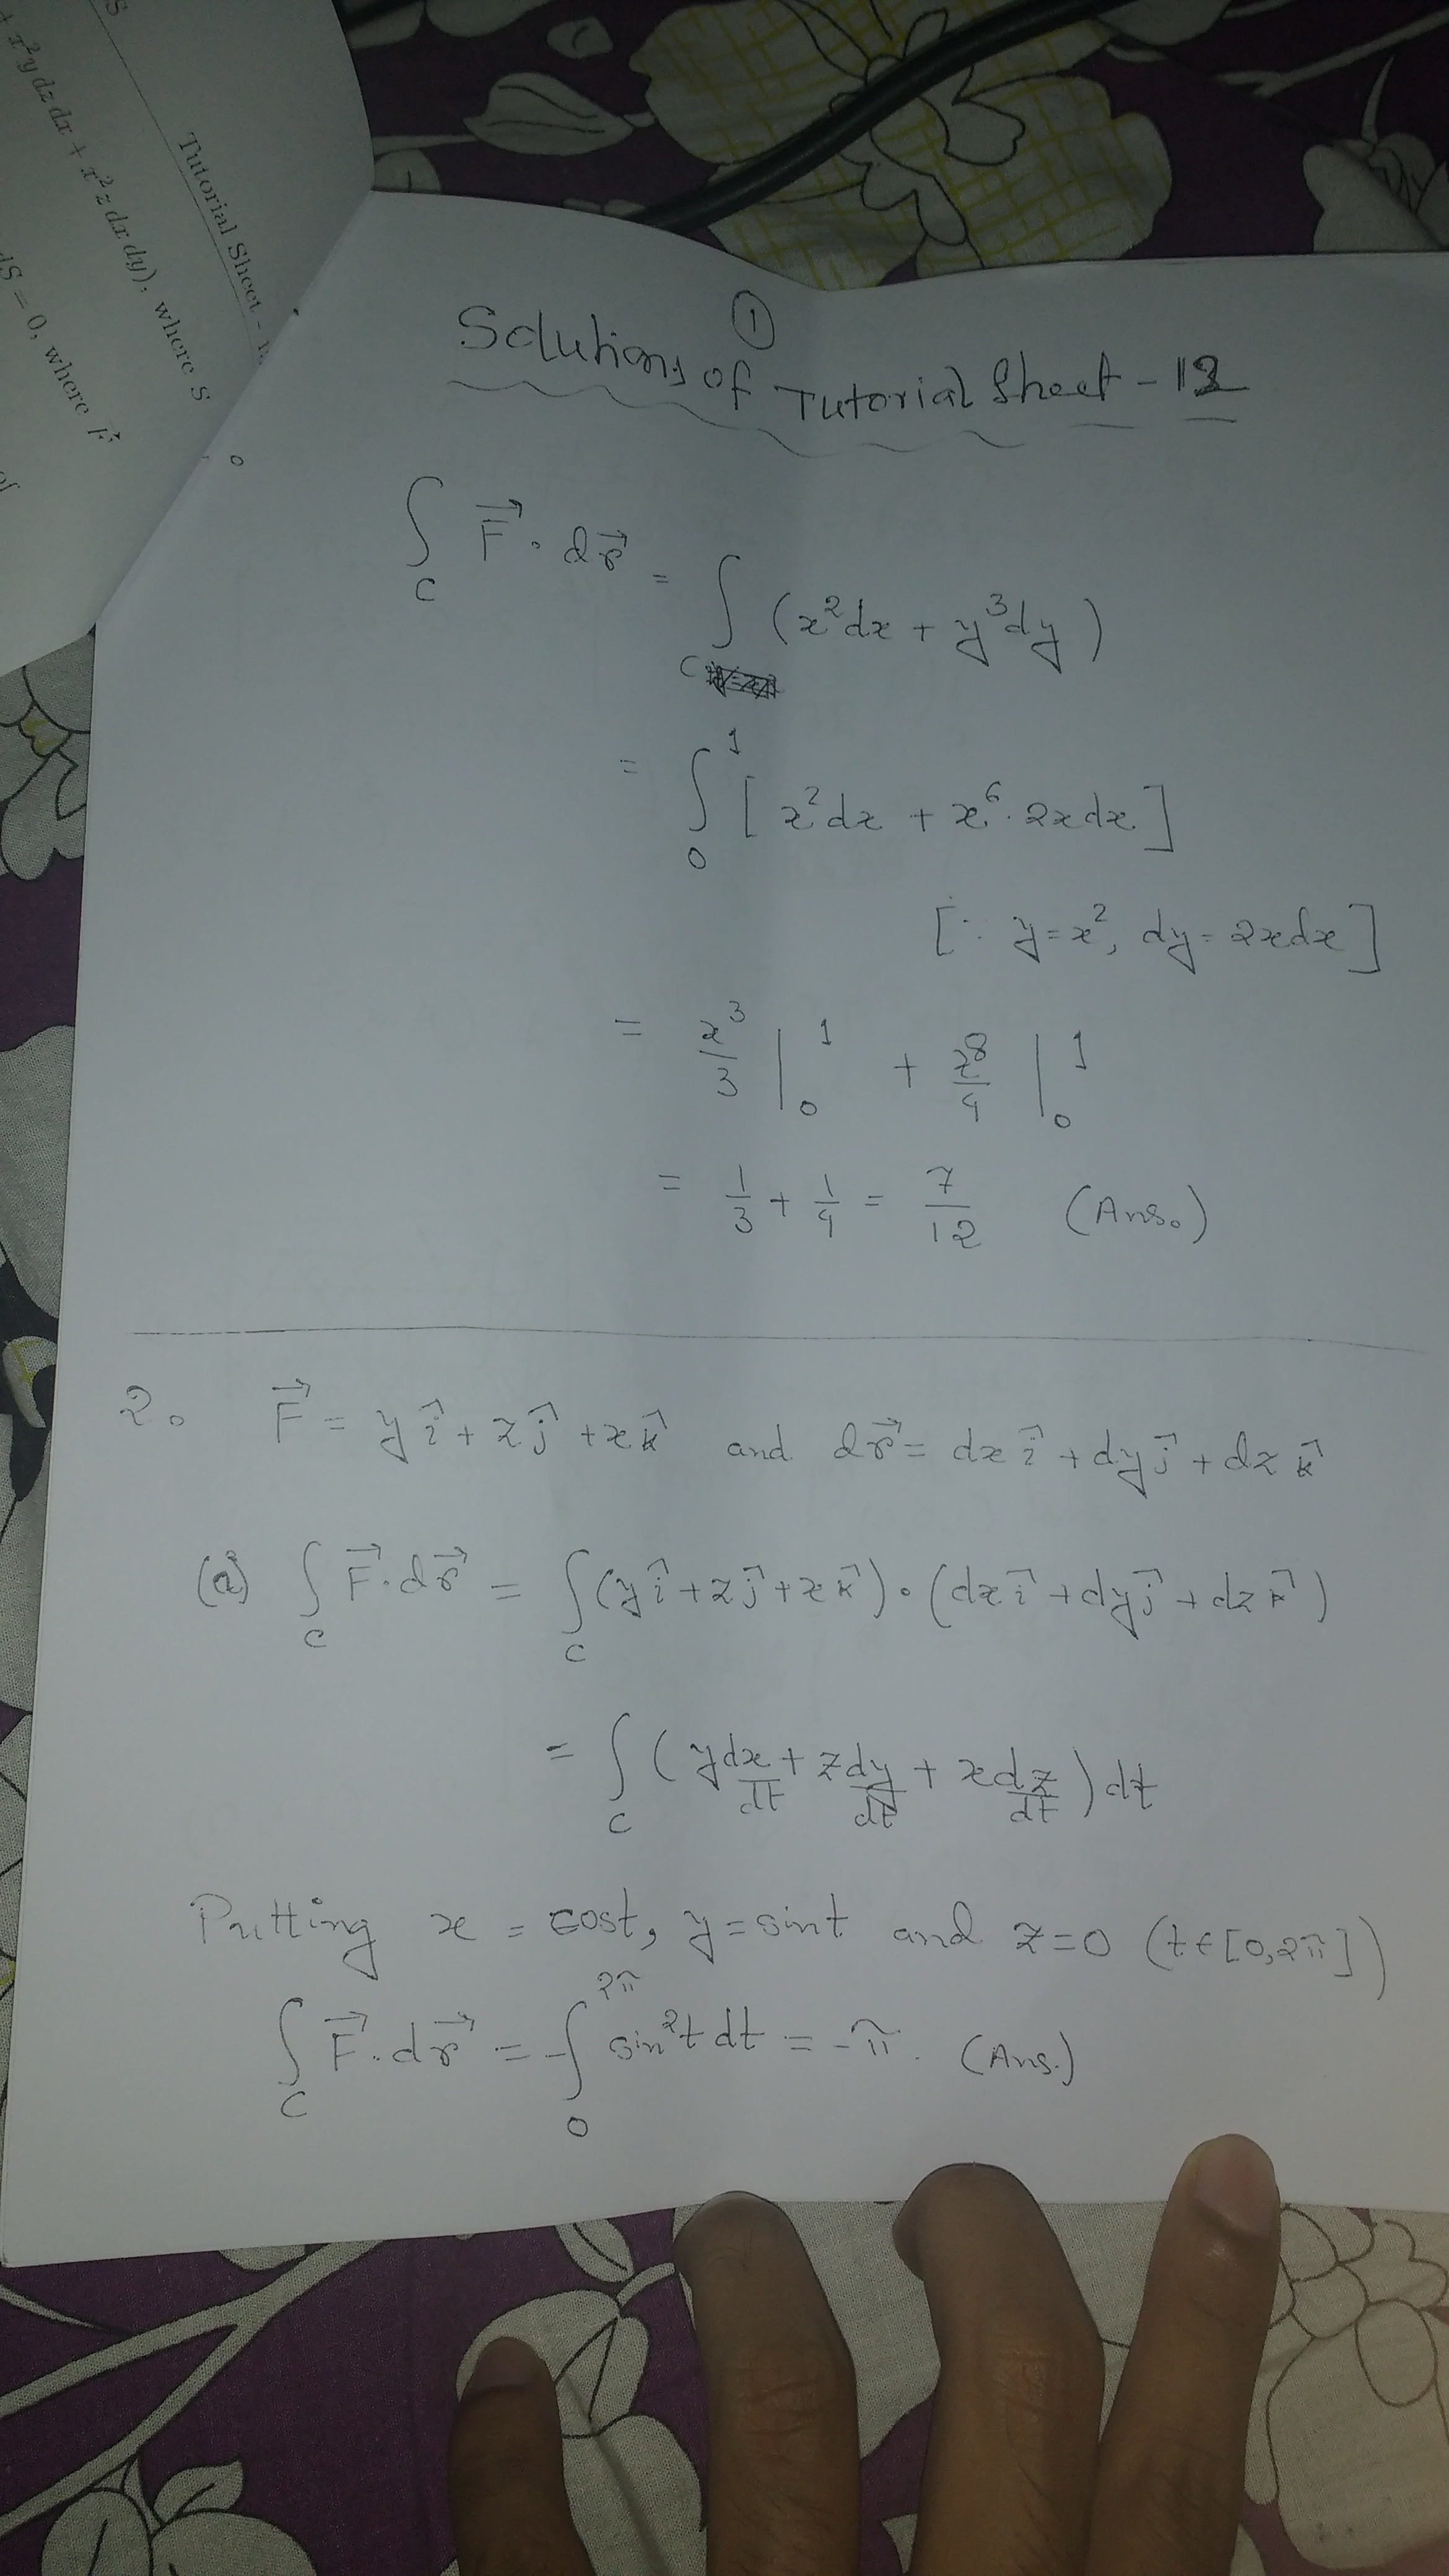 S
+ x²y dz dx + x²z dx dy), where S
dS = 0, where F⃗
of
Tutorial Sheet -
①
Solutions of Tutorial Sheet - 12
∫_C F⃗ · dr⃗ = ∫_C (x²dx + y³dy)
= ∫_0^1 [x²dx + x⁶·2xdx]
[∵ y=x², dy=2xdx]
= x³/3 |_0^1 + x⁸/4 |_0^1
= 1/3 + 1/4 = 7/12 (Ans.)
2. F⃗ = y î + z ĵ + x k̂ and dr⃗ = dx î + dy ĵ + dz k̂
(a) ∫_C F⃗·dr⃗ = ∫_C (y î + z ĵ + x k̂)·(dx î + dy ĵ + dz k̂)
= ∫_C (y dx/dt + z dy/dt + x dz/dt) dt
Putting x = cost, y = sint and z=0 (t∈[0,2π])
∫_C F⃗·dr⃗ = -∫_0^2π sin²t dt = -π. (Ans.)